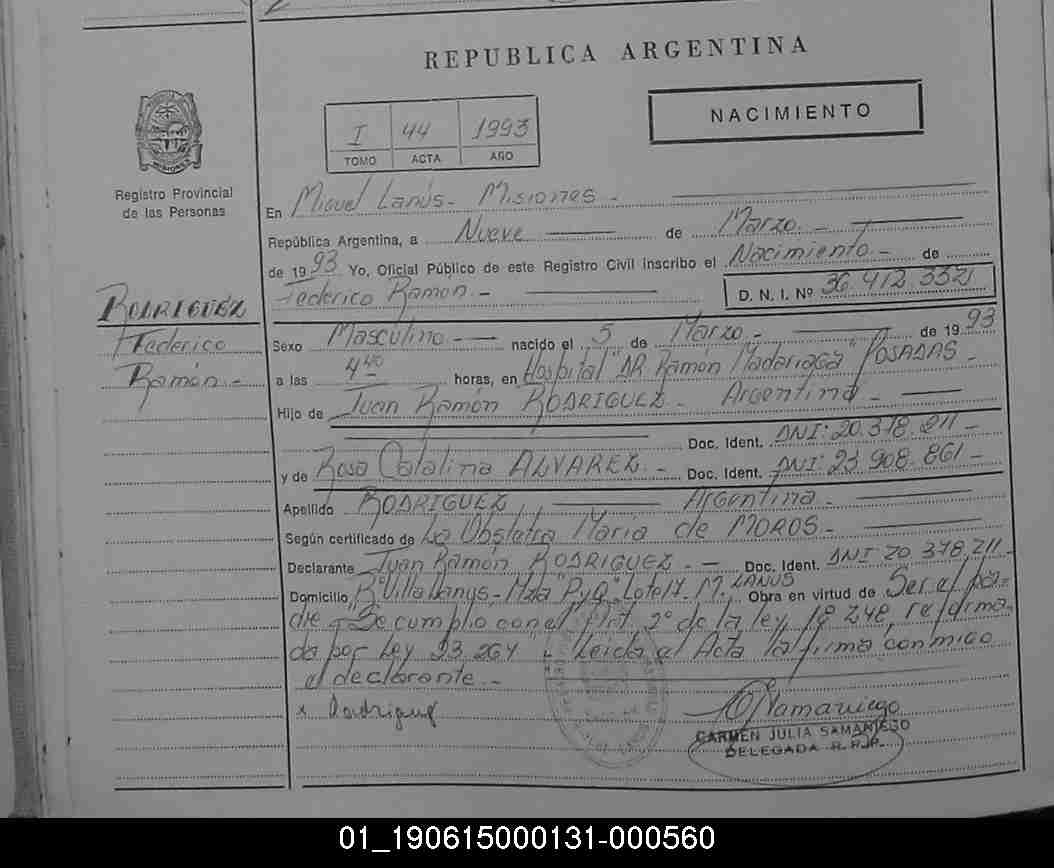 REPUBLICA ARGENTINA
NACIMIENTO
I 44 1993
TOMO ACTA AÑO
Registro Provincial
de las Personas
En Miguel Lanús - Misiones -
República Argentina, a Nueve de Marzo. -
de 1993 Yo, Oficial Público de este Registro Civil inscribo el Nacimiento - de
Federico Ramón. - D. N. I. Nº 36.412.332
RODRIGUEZ
Federico
Ramón. -
Sexo Masculino - nacido el 5 de Marzo - de 1993
a las 4 40 horas, en Hospital "DR. Ramón Madariaga" POSADAS -
Hijo de Juan Ramón RODRIGUEZ - Argentina -
Doc. Ident. DNI: 20.378.211 -
y de Rosa Catalina ALVAREZ. - Doc. Ident. DNI: 23.908.861 -
Apellido RODRIGUEZ Argentina -
Según certificado de La Obstetra Maria de MOROS -
Declarante Juan Ramón RODRIGUEZ - - Doc. Ident. DNI 20.378.211 -
Domicilio Bº Villa Lanus - Mza "P y Q" Lote 17 - M. LANUS Obra en virtud de Ser el pa-
dre - Se cumplio con el Art. 2º de la ley 18.248, reforma-
da por Ley 23.264 - Leida el Acta la firma conmigo
el declarante -
x Rodriguez
Samaniego
CARMEN JULIA SAMANIEGO
DELEGADA R.P.P.
01_190615000131-000560